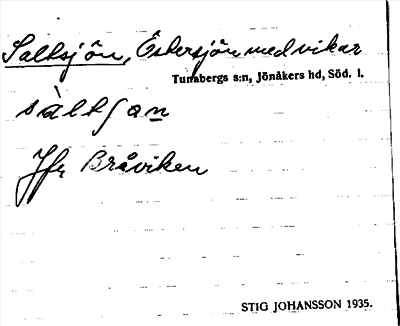 Saltsjön, Östersjön med vikar
Tunabergs s:n, Jönåkers hd, Söd. l.
sàltʃɑn
Jfr Bråviken
STIG JOHANSSON 1935.